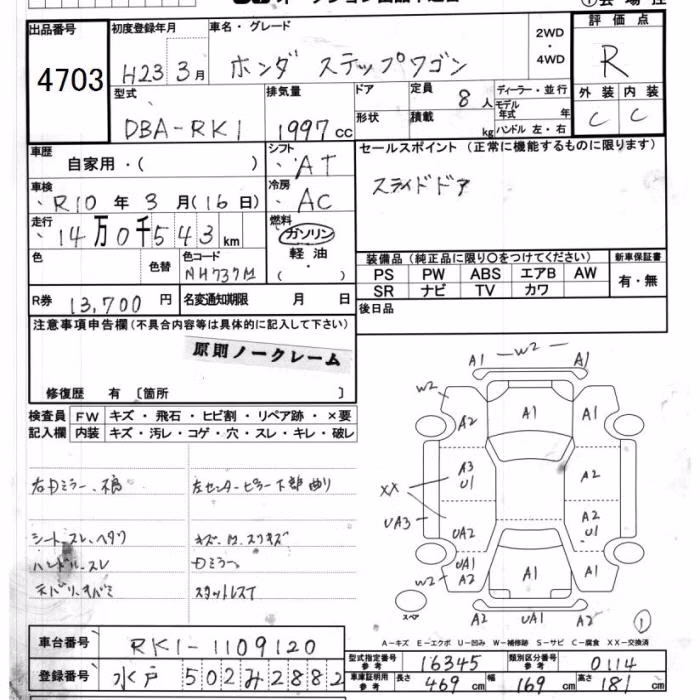 出品番号 4703
初度登録年月 H23 3月
車名・グレード ホンダ ステップワゴン
2WD・4WD
評価点 R
型式 DBA-RK1
排気量 1997cc
ドア 形状
定員 8人
積載 kg
ディーラー・並行
モデル年式 年
ハンドル 左・右
外装 C 内装 C
車歴 自家用・( )
シフト AT
セールスポイント(正常に機能するものに限ります)
スライドドア
車検 R10年3月(16日)
冷房 AC
走行 14万0千543km
燃料 ガソリン・軽油・( )
色 色替 色コード NH737M
装備品(純正品に限り〇をつけてください)
新車保証書 有・無
PS PW ABS エアB AW
SR ナビ TV カワ
R券 13,700円
名変通知期限 月 日
後日品
注意事項申告欄(不具合内容等は具体的に記入して下さい)
原則ノークレーム
修復歴 有〔箇所 〕
検査員記入欄
FW キズ・飛石・ヒビ割・リペア跡・×要
内装 キズ・汚レ・コゲ・穴・スレ・キレ・破レ
左センターピラー下部曲り
シートスレ、ヘタリ
ハンドルスレ
Dミラー
スタットレスT
A1 W2 A1
W2 A2 A1
A3 U1 A2
XX
UA3 UA2 A2 U1
UA1 A2 A1 A1
W2
スペア A2 UA1 A2 ①
A-キズ E-エクボ U-凹み W-補修跡 S-サビ C-腐食 XX-交換済
車台番号 RK1-1109120
登録番号 水戸 502 み 2882
型式指定番号参考 16345
類別区分番号参考 0114
車庫証明用参考 長さ 469cm 幅 169cm 高さ 181cm